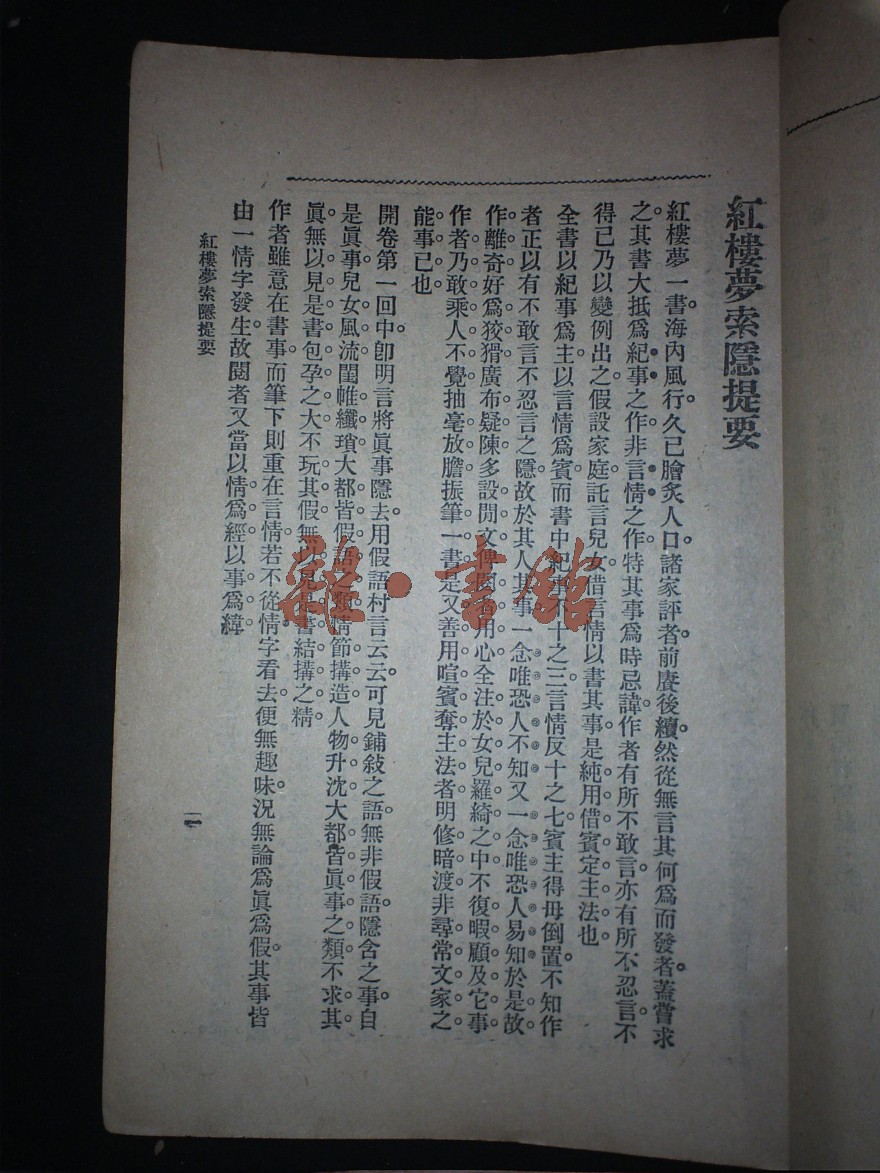 紅樓夢索隱提要
紅樓夢一書海內風行久已膾炙人口諸家評者前賡後續然從無言其何爲而發者蓋嘗求
之其書大抵爲紀事之作非言情之作特其事爲時忌諱作者有所不敢言亦有所不忍言不
得已乃以變例出之假設家庭託言兒女借言情以書其事是純用借賓定主法也
全書以紀事爲主以言情爲賓而書中紀事不十之三言情反十之七賓主得毋倒置不知作
者正以有不敢言不忍言之隱故於其人其事一念唯恐人不知又一念唯恐人易知於是故
作離奇好爲狡獪廣布疑陳多設閒文俾閱者用心全注於女兒羅綺之中不復暇顧及它事
作者乃敢乘人不覺抽毫放膽振筆一書是又善用喧賓奪主法者明修暗渡非尋常文家之
能事已也
開卷第一回中卽明言將眞事隱去用假語村言云云可見鋪敍之語無非假語隱含之事自
是眞事兒女風流閨帷纖瑣大都皆假語之類情節搆造人物升沈大都皆眞事之類不求其
眞無以見是書包孕之大不玩其假無以見是書結搆之精
作者雖意在書事而筆下則重在言情若不從情字看去便無趣味況無論爲眞爲假其事皆
由一情字發生故閱者又當以情爲經以事爲緯
紅樓夢索隱提要
一
雜·書館